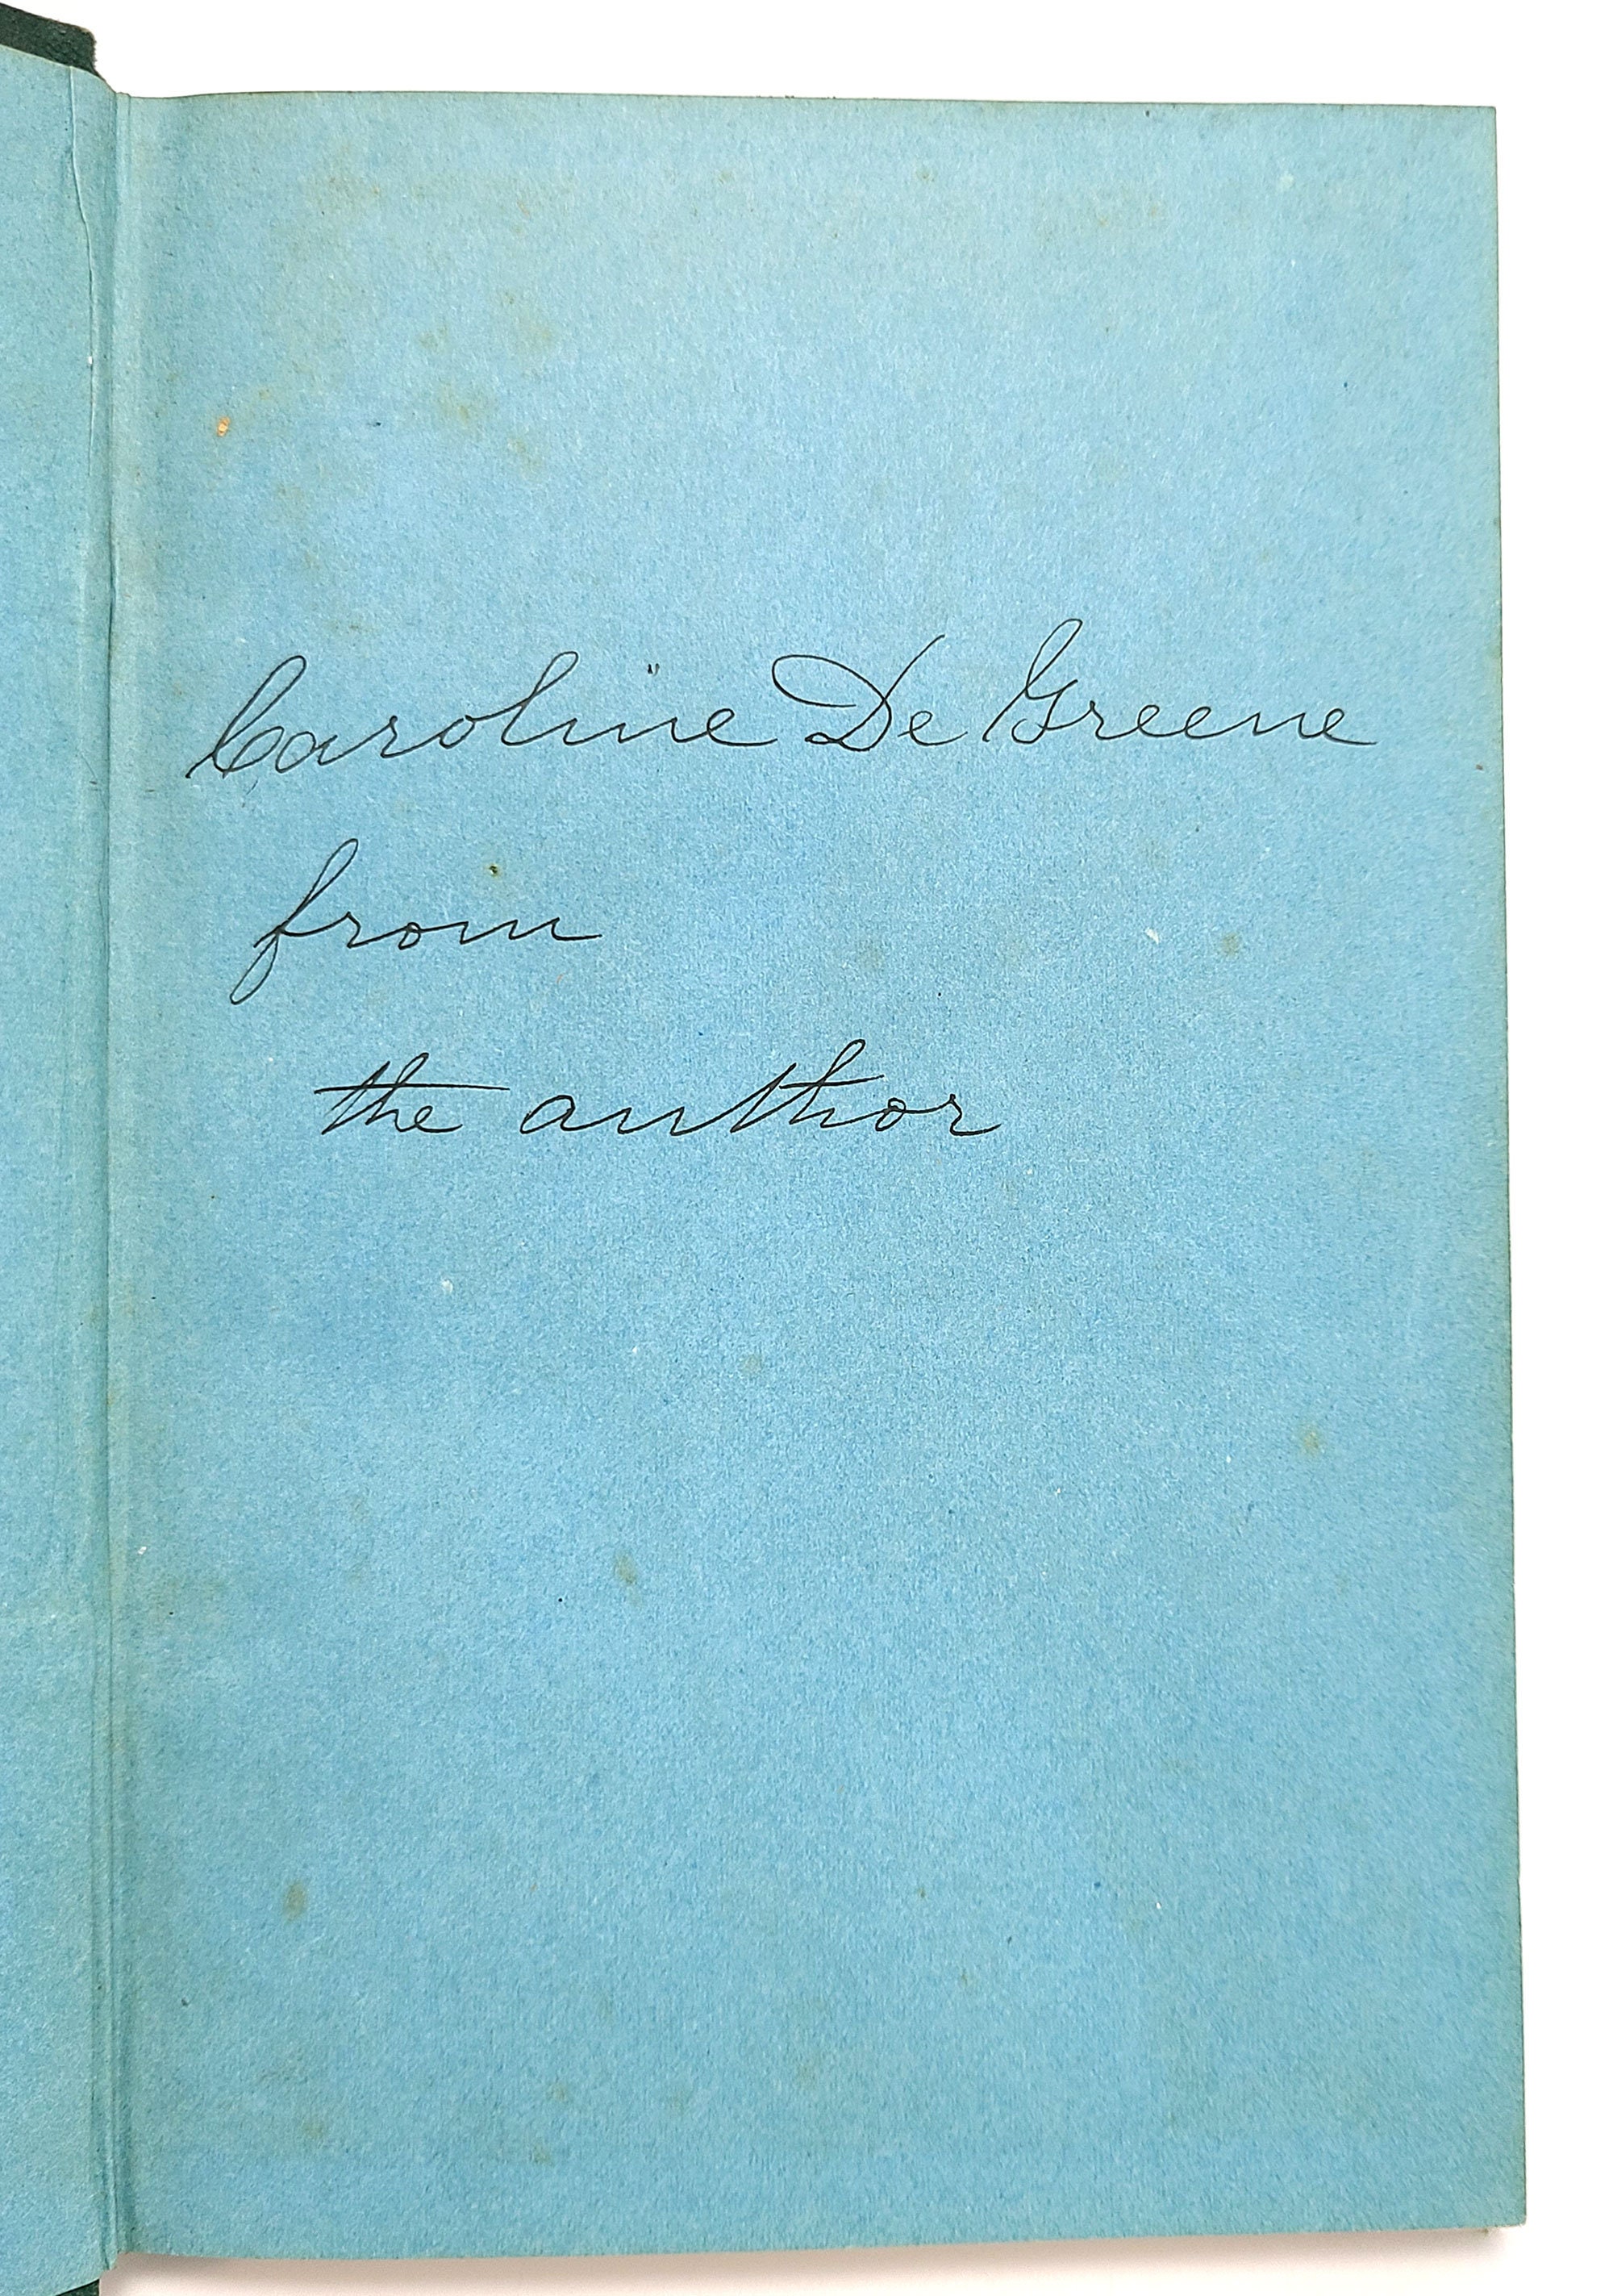 Caroline De Greene
from
the author